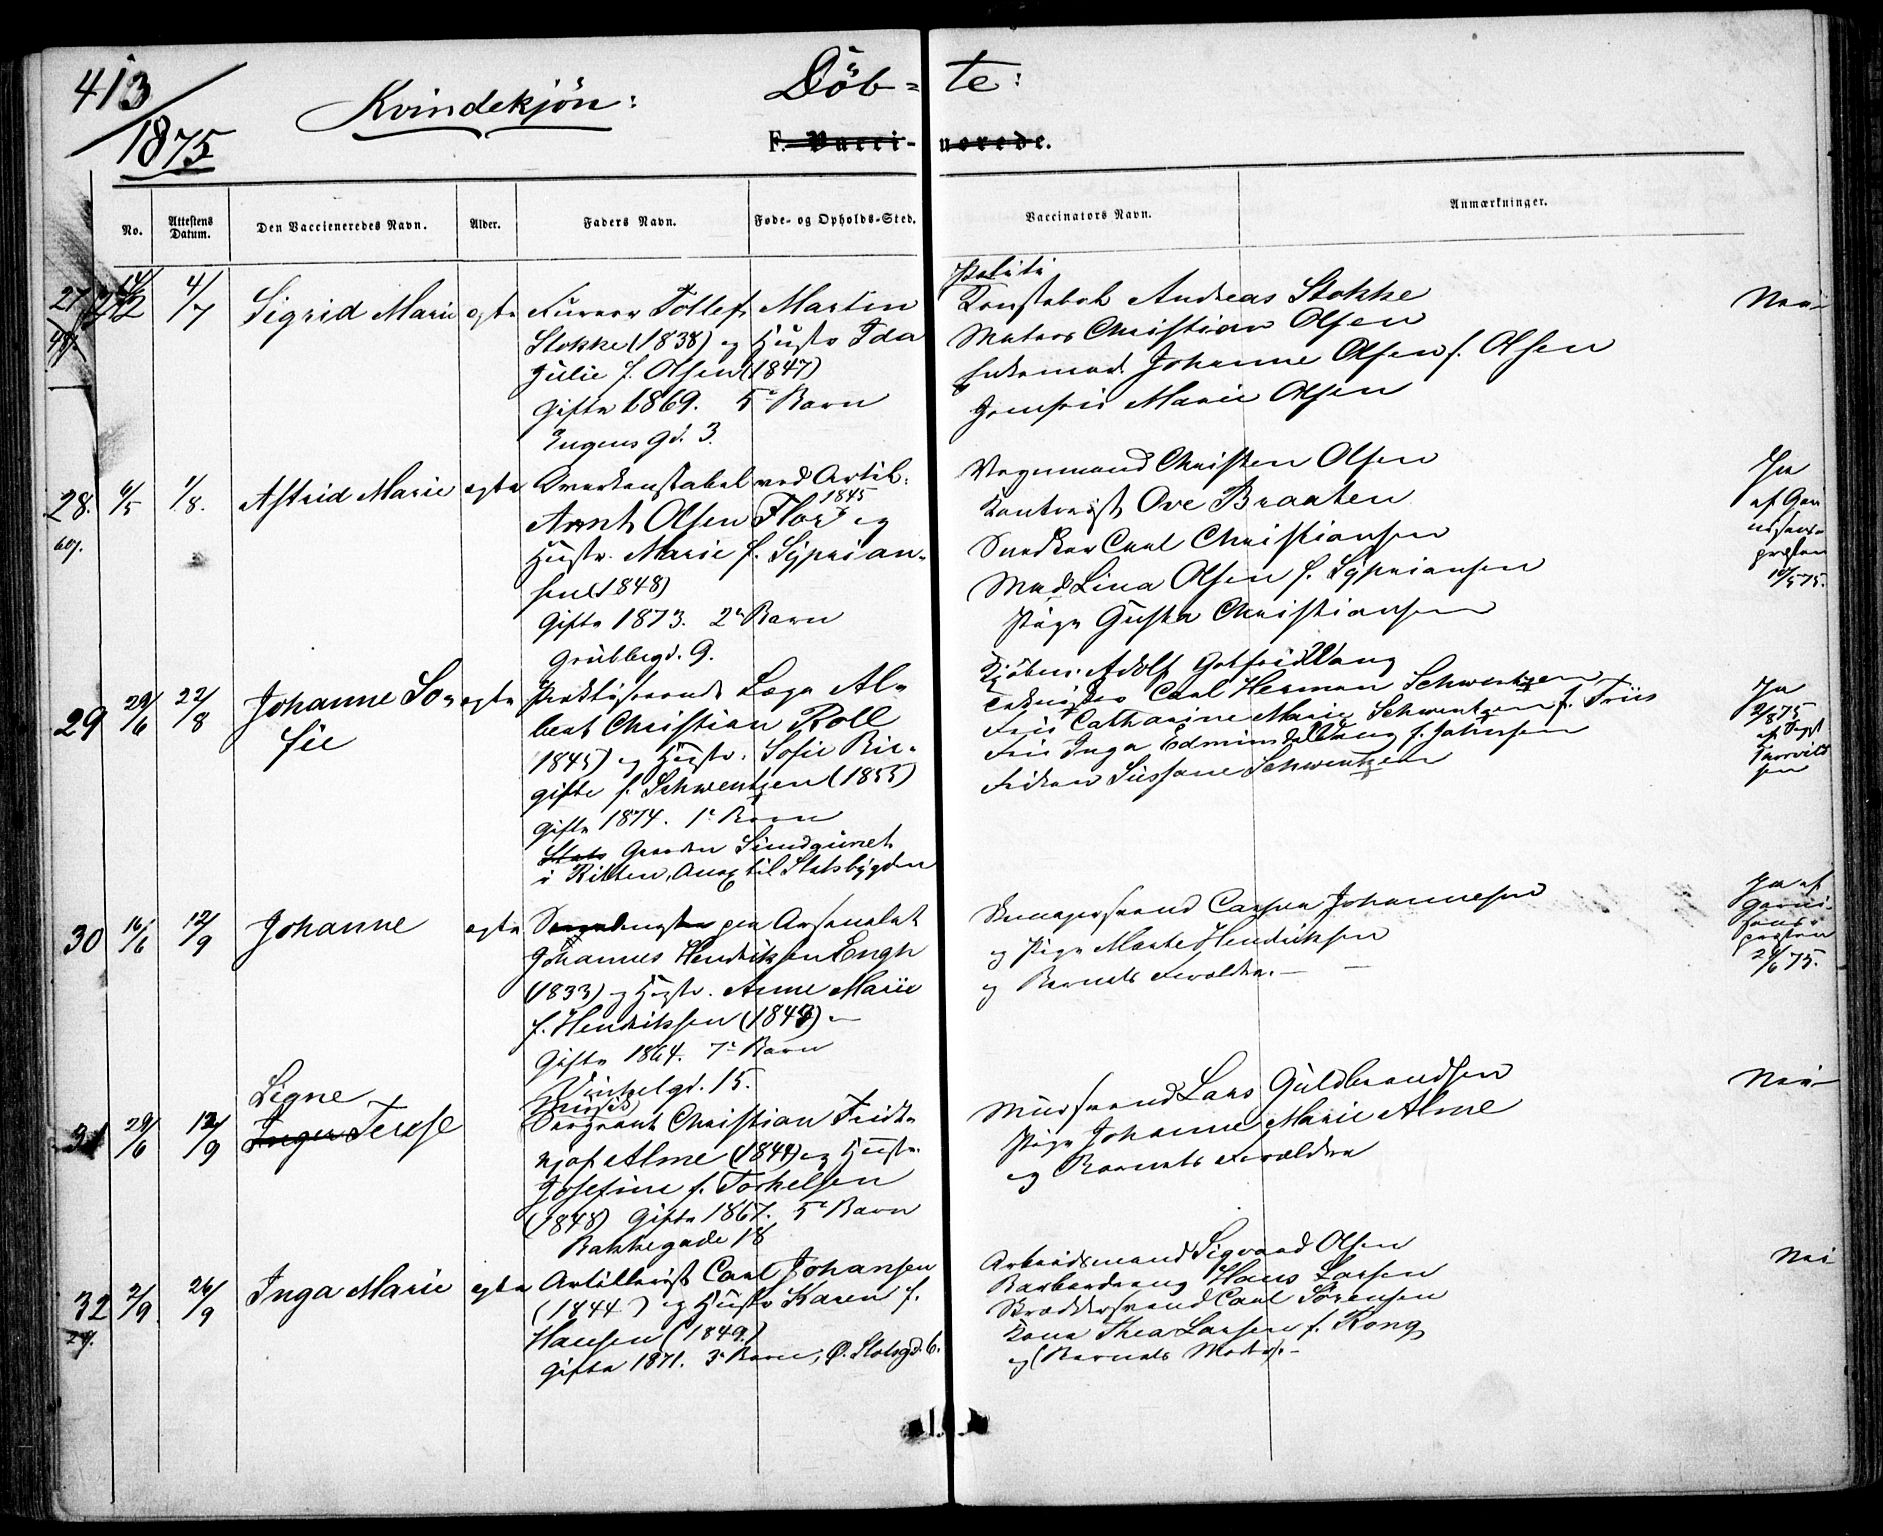 413
1875
Kvindekjön:
Döb- te:
F. Vacci- norede.
No.
Attestens Datum.
Den Vaccieneredes Navn.
Alder.
Faders Navn.
Føde- og Opholds-Sted.
Vaccinators Navn.
Anmærkninger.
27
4/7
Sigrid Marie
egte
Furer Tollef Martin
Stokke (1838) og Hustr Ida
Julie f. Olsen (1847)
Gifte 1869. 5e Barn
3.
Politi
Konstabel Andreas Stokke
Christian Olsen
Enkemad. Johanne Olsen f. Olsen
Jomfru Marie Olsen
Nei
28.
6/5
1/8.
Astrid Marie
egte
Overkonstabel ved Artil.
Arnt Olsen Flor og
1845
Hustr. Marie f. Syprian-
sen (1848)
Gifte 1873. 2e Barn
Grubbegd. 9.
Vognmand Christen Olsen
Kontorist Ove Braaten
Snedker Carl Christiansen
Mad Lina Olsen f. Sypriansen
Pige Gusta Christiansen
Ja
af Gar
nisons-
presten
10/5 75.
29
29/6
22/8
Johanne So-
fie
egte
Praktiserende Læge Al-
bert Christian Roll
1845) og Hustr. Sofie Bir-
gitte f. Schwentzen (1853)
Gifte 1874. 1e Barn
Stats Gaarden Sundgünet
i Rissen, Anex til Statsbygden
Kjöbm. Adolf Gotfried Vang
Carl Herman Schwentzen
Fru Catharine Marie Schwentzen f. Friis
Fru Inga Edminda Vang f. Johnsen
Fröken Sussane Schwentzen
Ja
9/8 75
30
16/6
12/9
Johanne
egte
paa Arsenalet
Johannes Hendriksen Engh
(1833) og Hustr. Anne Marie
f. Hendriksen (1843) -
Gifte 1864. 7e Barn
Vinkelgd. 15.
Skomagersvend Casper Johannesen
og Pige Marte Hendriksen
og Barnets Forældre. - -
Ja af
Garni-
sons-
presten
24/6 75.
31
29/6
12/9
Signe
Inger Terese
Sergeant Christian Fridt-
hjof Alme (1844) og Hustr.
Josefine f. Torkelsen
(1848) Gifte 1867. 5e Barn
Bakkegade 18
Mursvend Lars Guldbrandsen
Pige Johanne Marie Alme
og Barnets Forældre
Nei
32
2/9
26/9
Inga Marie
egte
Artillerist Carl Johansen
(1844) og Hustr Karen f.
Hansen (1849)
Gifte 1871. 3e Barn, Ø. Slotsgd. 6.
Arbeidsmand Sigvard Olsen
Barberdreng Hans Larsen
Skræddersvend Carl Sörensen
Kone Thea Larsen f. Kong
og (Barnets Moder). -
Nei